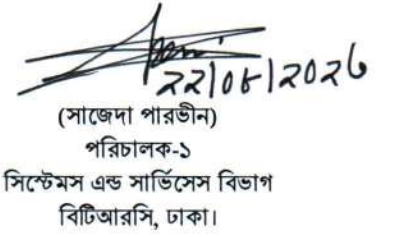 ২২|০৮|২০২৬
(সাজেদা পারভীন)
পরিচালক-১
সিস্টেমস এন্ড সার্ভিসেস বিভাগ
বিটিআরসি, ঢাকা।